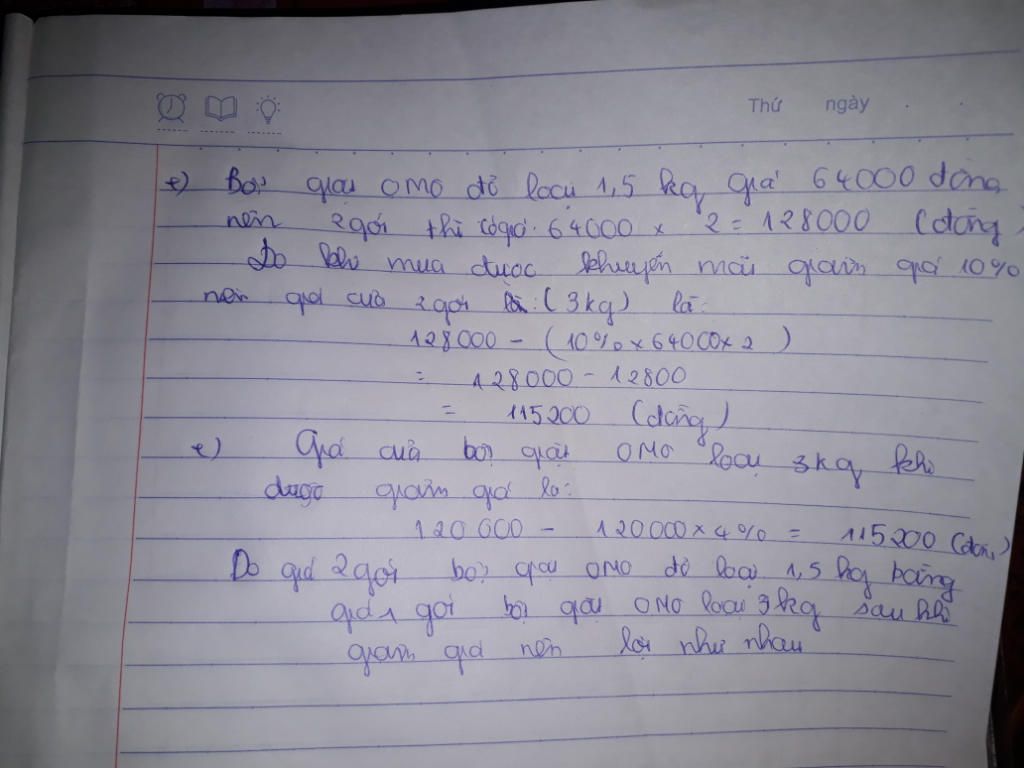 Thứ ngày
+) Bột giặt OMO đỏ loại 1,5 kg giá 64000 đồng
nên 2 gói thì có giá: 64000 x 2 = 128000 (đồng)
Do khi mua được khuyến mãi giảm giá 10%
nên giá của 2 gói là: (3kg) là:
128000 - (10% x 64000 x 2)
= 128000 - 12800
= 115200 (đồng)
+) Giá của bột giặt OMO loại 3kg khi
được giảm giá là:
120000 - 120000 x 4% = 115200 (đồng)
Do giá 2 gói bột giặt OMO đỏ loại 1,5 kg bằng
giá 1 gói bột giặt OMO loại 3kg sau khi
giảm giá nên lợi như nhau